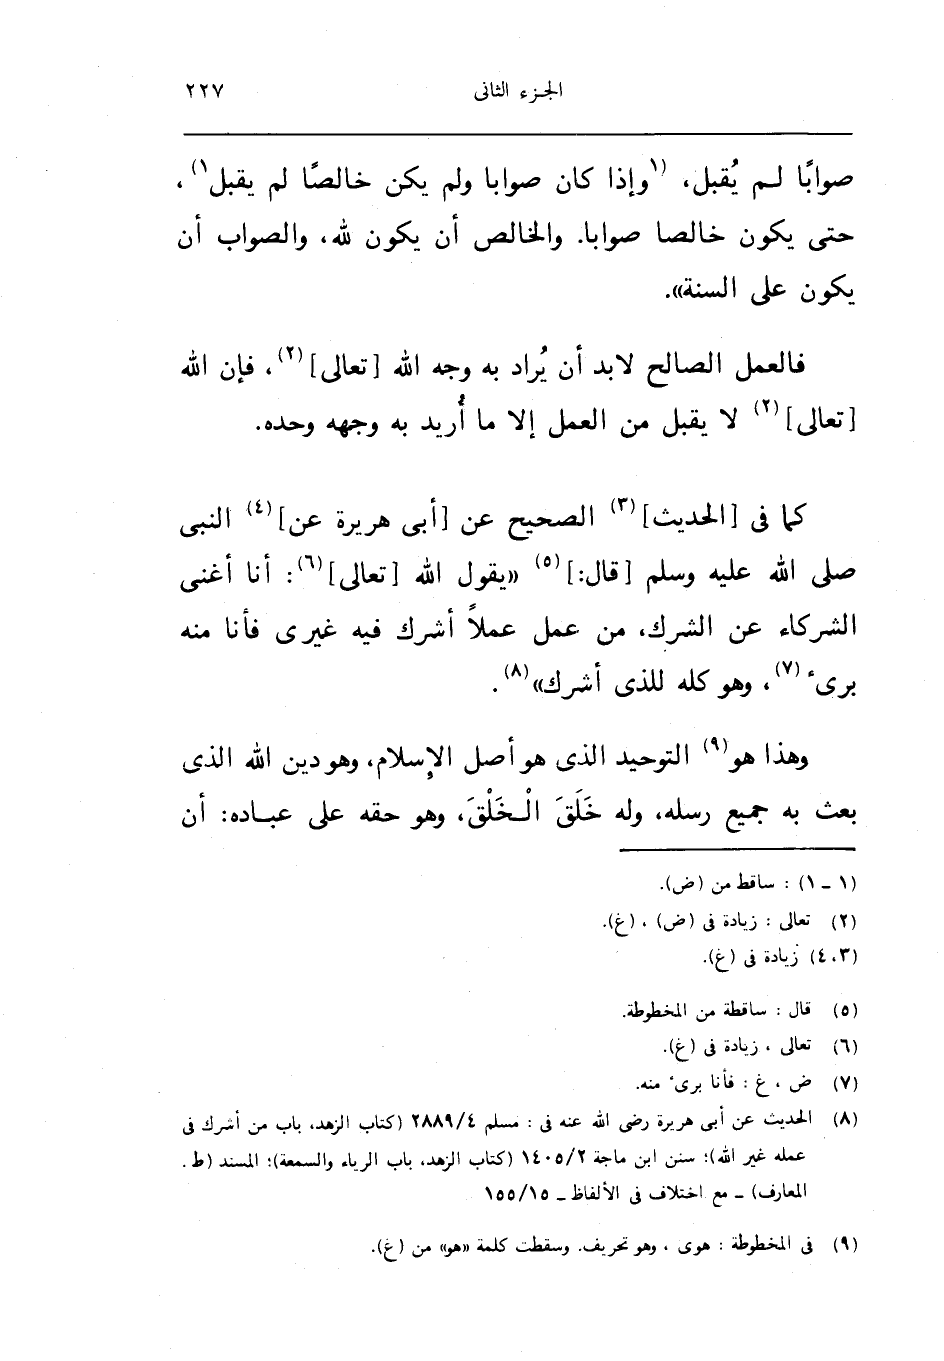 الجزء الثانى ٢٢٧
صوابًا لم يُقبل، (١وإذا كان صوابا ولم يكن خالصًا لم يقبل١)،
حتى يكون خالصا صوابا. والخالص أن يكون لله، والصواب أن
يكون على السنة».
فالعمل الصالح لابد أن يُراد به وجه الله [تعالى](٢)، فإن الله
[تعالى](٢) لا يقبل من العمل إلا ما أُريد به وجهه وحده.
كما فى [الحديث](٣) الصحيح عن [أبى هريرة عن](٤) النبى
صلى الله عليه وسلم [قال:](٥) «يقول الله [تعالى](٦): أنا أغنى
الشركاء عن الشرك، من عمل عملاً أشرك فيه غيرى فأنا منه
برىء(٧)، وهو كله للذى أشرك»(٨).
وهذا هو(٩) التوحيد الذى هو أصل الإسلام، وهو دين الله الذى
بعث به جميع رسله، وله خَلَقَ الْخَلْقَ، وهو حقه على عباده: أن
(١ ـ ١) : ساقط من (ض).
(٢) تعالى : زيادة فى (ض) ، (غ).
(٣، ٤) زيادة فى (غ).
(٥) قال : ساقطة من المخطوطة.
(٦) تعالى ، زيادة فى (غ).
(٧) ض ، غ : فأنا برىء منه.
(٨) الحديث عن أبى هريرة رضى الله عنه فى : مسلم ٢٨٨٩/٤ (كتاب الزهد، باب من أشرك فى
عمله غير الله)؛ سنن ابن ماجة ١٤٠٥/٢ (كتاب الزهد، باب الرياء والسمعة)؛ المسند (ط.
المعارف) ـ مع اختلاف فى الألفاظ ـ ١٥٥/١٥
(٩) فى المخطوطة : هوى ، وهو تحريف. وسقطت كلمة «هو» من (غ).